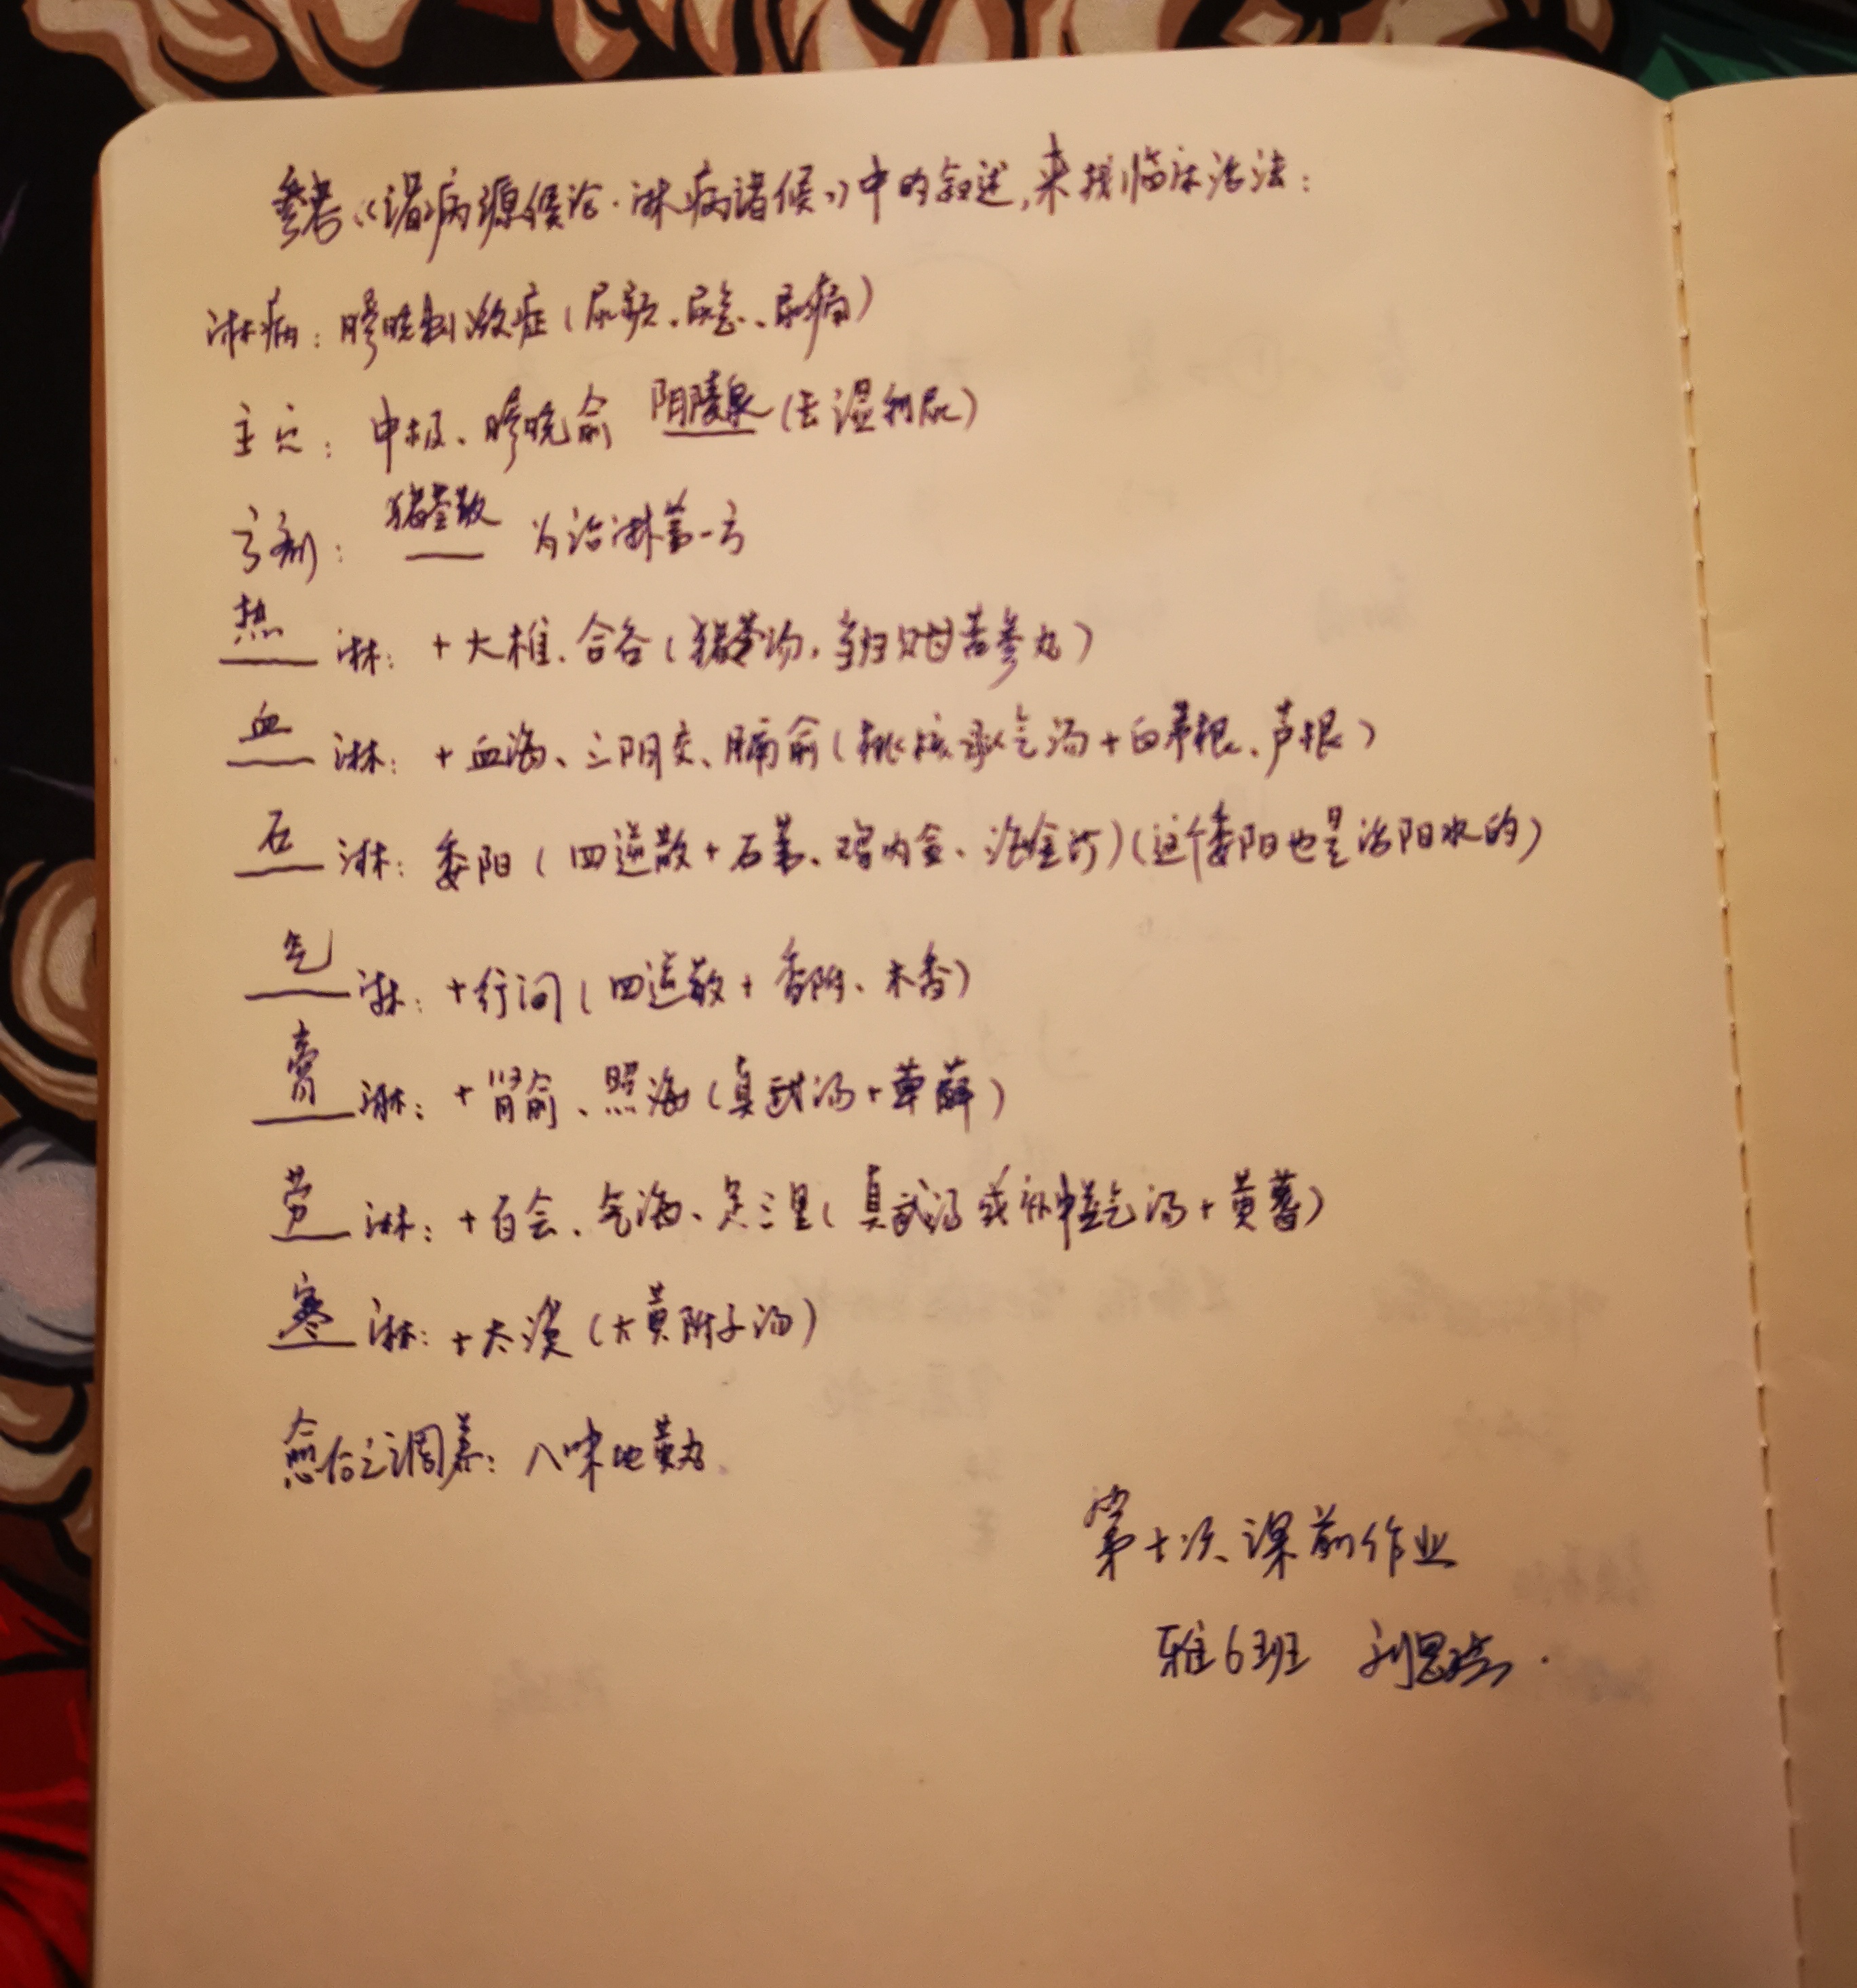 参考《诸病源候论·淋病诸候》中的叙述,来找临床治法:
淋病:膀胱刺激症(尿频、尿急、尿痛)
主穴:中极、膀胱俞 阴陵泉(去湿利尿)
方剂:猪苓散 为治淋第一方
热淋:+大椎、合谷(猪苓汤,当归贝母苦参丸)
血淋:+血海、三阴交、膈俞(桃核承气汤+白茅根、芦根)
石淋:委阳(四逆散+石苇、鸡内金、海金沙)(这个委阳也是治阳水的)
气淋:+行间(四逆散+香附、木香)
膏淋:+肾俞、照海(真武汤+萆薢)
劳淋:+百会、气海、足三里(真武汤或补中益气汤+黄蓍)
寒淋:+太溪(大黄附子汤)
愈后之调养:八味地黄丸.
第七次课前作业
雅6班 刘思